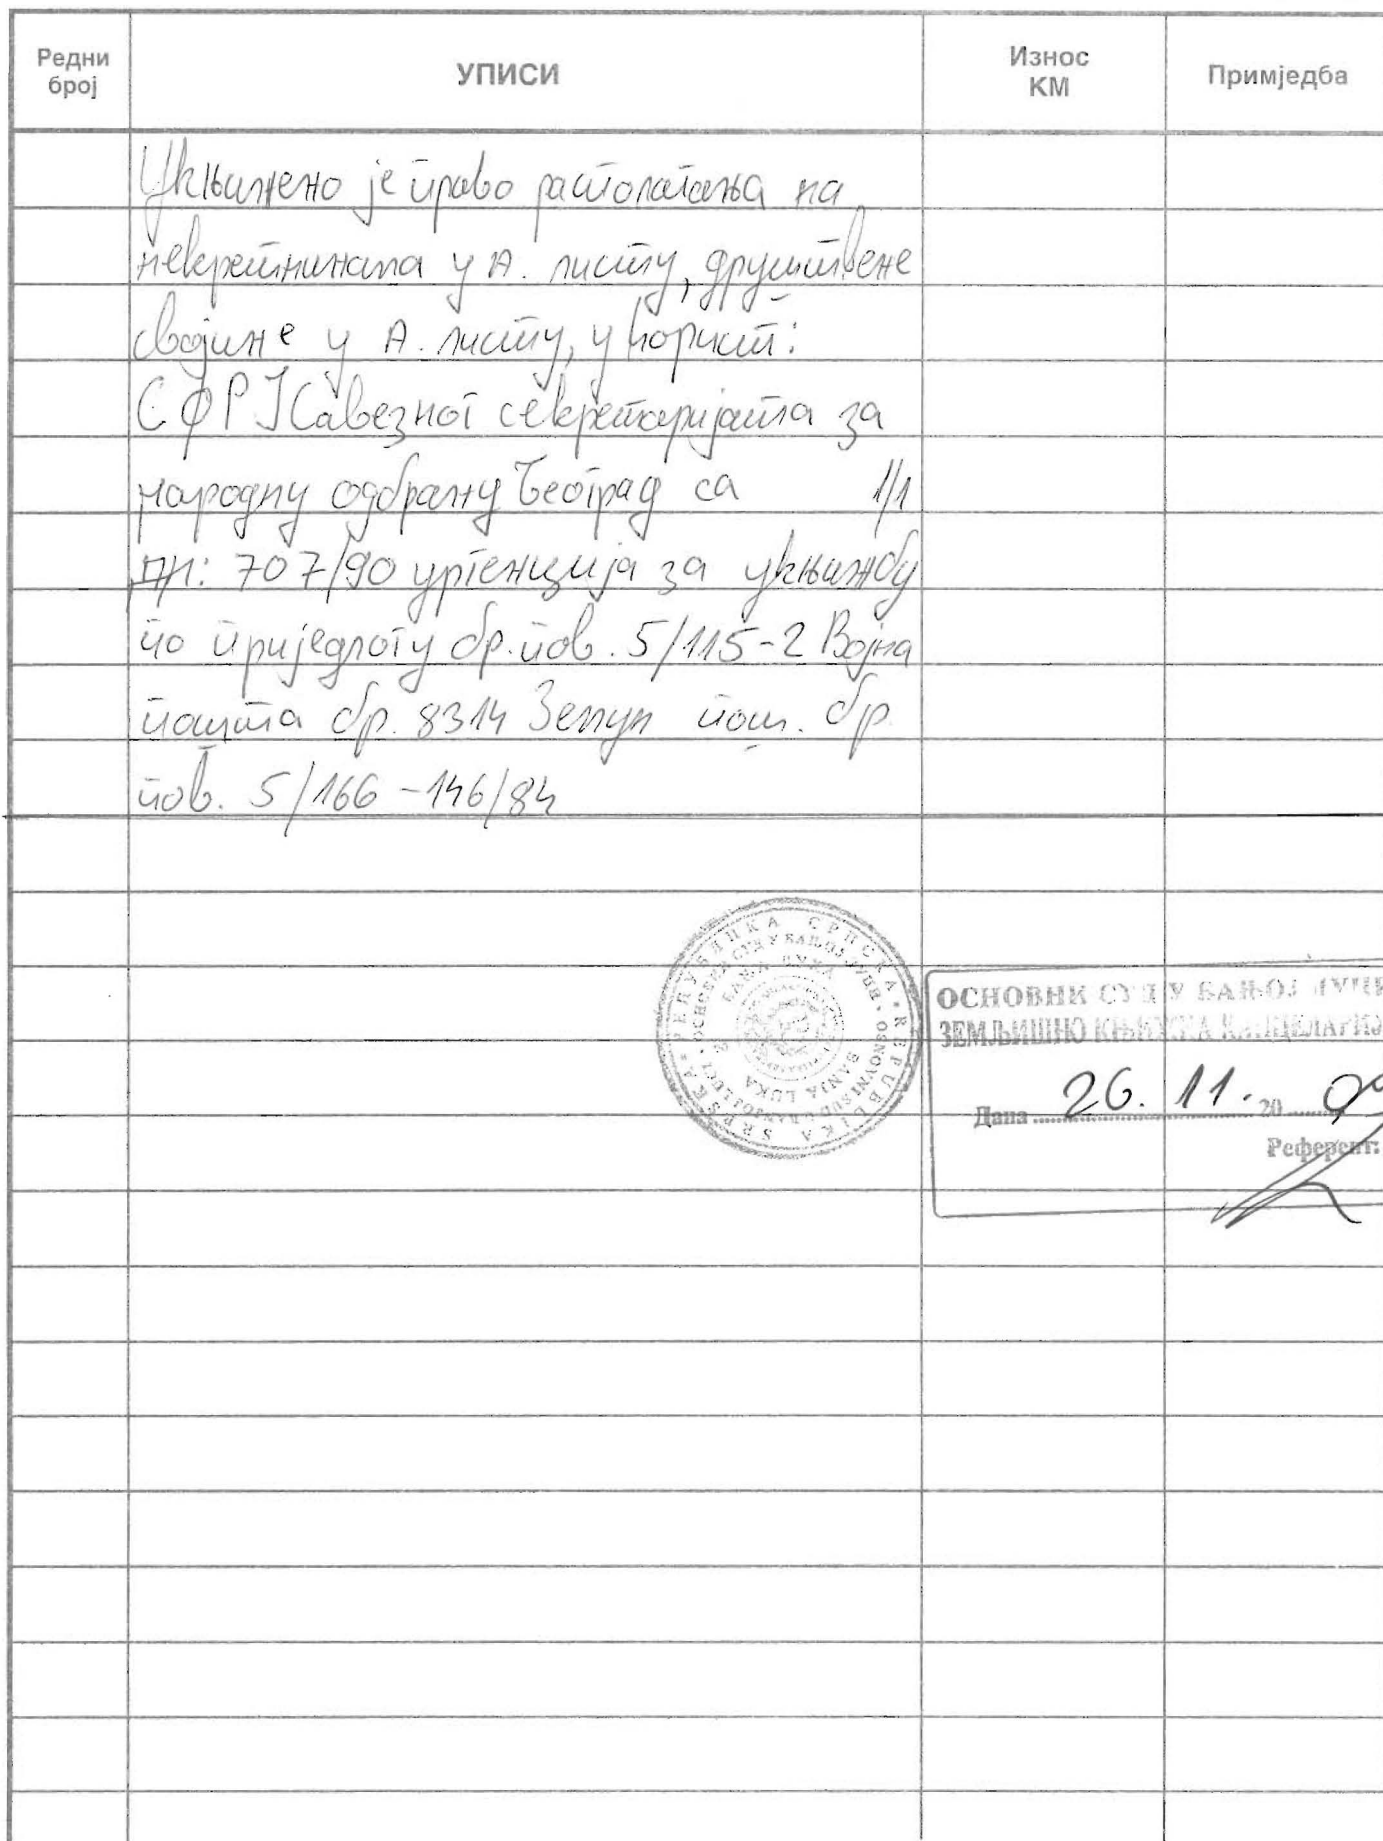 Редни број
УПИСИ
Износ КМ
Примједба
Укњижено је право располагања на
некретнинама у А. листу, друштвене
својине у А. листу, у корист:
СФРЈ Савезног секретаријата за
народну одбрану Београд са 1/1
пн: 707/90 ургенција за укњижбу
по приједлогу бр. пов. 5/115-2 Војна
пошта бр. 8314 Земун пош. бр.
пов. 5/166-146/84
РЕПУБЛИКА СРПСКА • REPUBLIKA SRPSKA
ОСНОВНИ СУД У БАЊОЈ ЛУЦИ • OSNOVNI SUD U BANJOJ LUCI
БАЊА ЛУКА
BANJA LUKA
2
ОСНОВНИ СУД У БАЊОЈ ЛУЦИ
ЗЕМЉИШНО КЊИЖНА КАНЦЕЛАРИЈ
Дана 26. 11. 20 09
Референт: